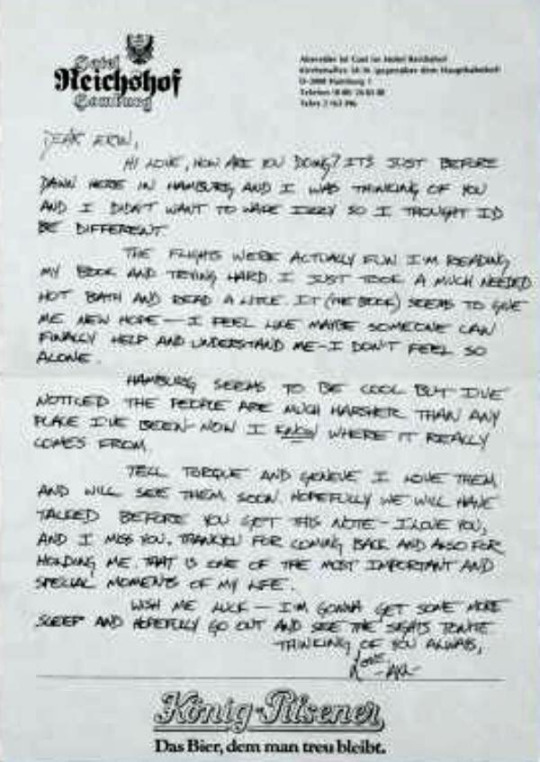 Hotel
Reichshof
Hamburg
Absender ist Gast im Hotel Reichshof
Kirchenallee 34-36 gegenüber dem Hauptbahnhof
D-2000 Hamburg 1
Telefon
Telex 2 163 396
DEAR ERIN,
HI LOVE, HOW ARE YOU DOING? IT'S JUST BEFORE
DAWN HERE IN HAMBURG AND I WAS THINKING OF YOU
AND I DIDN'T WANT TO WAKE IZZY SO I THOUGHT I'D
BE DIFFERENT.
THE FLIGHTS WERE ACTUALLY FUN I'M READING
MY BOOK AND TRYING HARD. I JUST TOOK A MUCH NEEDED
HOT BATH AND READ A LITTLE. IT (THE BOOK) SEEMS TO GIVE
ME NEW HOPE — I FEEL LIKE MAYBE SOMEONE CAN
FINALLY HELP AND UNDERSTAND ME - I DON'T FEEL SO
ALONE.
HAMBURG SEEMS TO BE COOL BUT I'VE
NOTICED THE PEOPLE ARE MUCH HARSHER THAN ANY
PLACE I'VE BEEN - NOW I KNOW WHERE IT REALLY
COMES FROM.
TELL TORQUE AND GENEVE I LOVE THEM
AND WILL SEE THEM SOON. HOPEFULLY WE WILL HAVE
TALKED BEFORE YOU GET THIS NOTE - I LOVE YOU,
AND I MISS YOU. THANKYOU FOR COMING BACK AND ALSO FOR
HOLDING ME. THAT IS ONE OF THE MOST IMPORTANT AND
SPECIAL MOMENTS OF MY LIFE.
WISH ME LUCK — I'M GONNA GET SOME MORE
SLEEP AND HOPEFULLY GO OUT AND SEE THE SIGHTS TONITE
THINKING OF YOU ALWAYS,
LOVE
-AXL-
König-Pilsener
Das Bier, dem man treu bleibt.